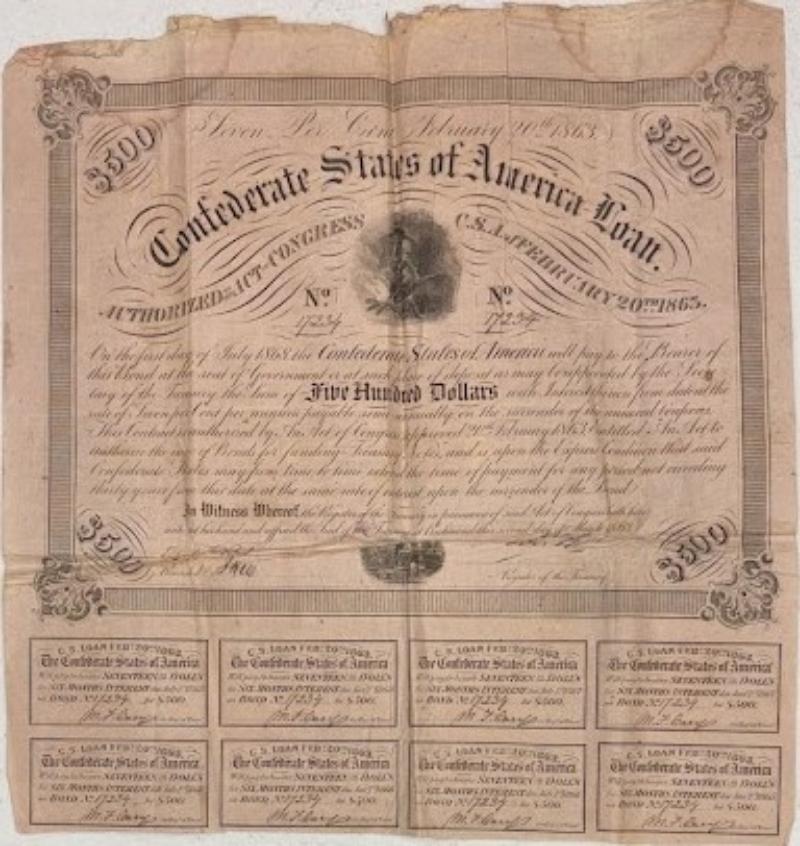 Seven Per Cent February 20th 1863.
$500
$500
Confederate States of America Loan.
AUTHORIZED ACT CONGRESS C.S.A. FEBRUARY 20TH 1863.
No No
17234 17234
On the first day of July 1868 the Confederate States of America will pay to the Bearer of
this Bond at the seat of Government or at such of deposit as may be appointed by the
of the Treasury the Sum of Five Hundred Dollars with Interest thereon from date at the
rate of Seven per Cent per annum payable semi-annually on the surrender of the annexed Coupons
This Contract is authorized by An Act of Congress approved 20th February 1863 Entitled An Act to
authorize the of Bonds for funding Treasury Notes, and is upon the Express Condition that said
Confederate States may from time to time extend the time of payment for any period not exceeding
thirty years from this date at the same rate of interest upon the surrender of the Bond
In Witness Whereof, the Register of the Treasury in pursuance of said Act of Congress hath
set his hand and affixed the Seal of the Treasury at Richmond this second day of March 1863
$500
$500
Register of the Treasury
C. S. LOAN FEB. 20TH 1863.
The Confederate States of America
Will pay to bearer SEVENTEEN DOLLS
for SIX MONTHS INTEREST due
on BOND No 17234 for $500.
C. S. LOAN FEB. 20TH 1863.
The Confederate States of America
Will pay to bearer SEVENTEEN DOLLS
for SIX MONTHS INTEREST due
on BOND No 17234 for $500.
C. S. LOAN FEB. 20TH 1863.
The Confederate States of America
Will pay to bearer SEVENTEEN DOLLS
for SIX MONTHS INTEREST due
on BOND No 17234 for $500.
C. S. LOAN FEB. 20TH 1863.
The Confederate States of America
Will pay to bearer SEVENTEEN DOLLS
for SIX MONTHS INTEREST due
on BOND No 17234 for $500.
C. S. LOAN FEB. 20TH 1863.
The Confederate States of America
Will pay to bearer SEVENTEEN DOLLS
for SIX MONTHS INTEREST due
on BOND No 17234 for $500.
C. S. LOAN FEB. 20TH 1863.
The Confederate States of America
Will pay to bearer SEVENTEEN DOLLS
for SIX MONTHS INTEREST due
on BOND No 17234 for $500.
C. S. LOAN FEB. 20TH 1863.
The Confederate States of America
Will pay to bearer SEVENTEEN DOLLS
for SIX MONTHS INTEREST due
on BOND No 17234 for $500.
C. S. LOAN FEB. 20TH 1863.
The Confederate States of America
Will pay to bearer SEVENTEEN DOLLS
for SIX MONTHS INTEREST due
on BOND No 17234 for $500.